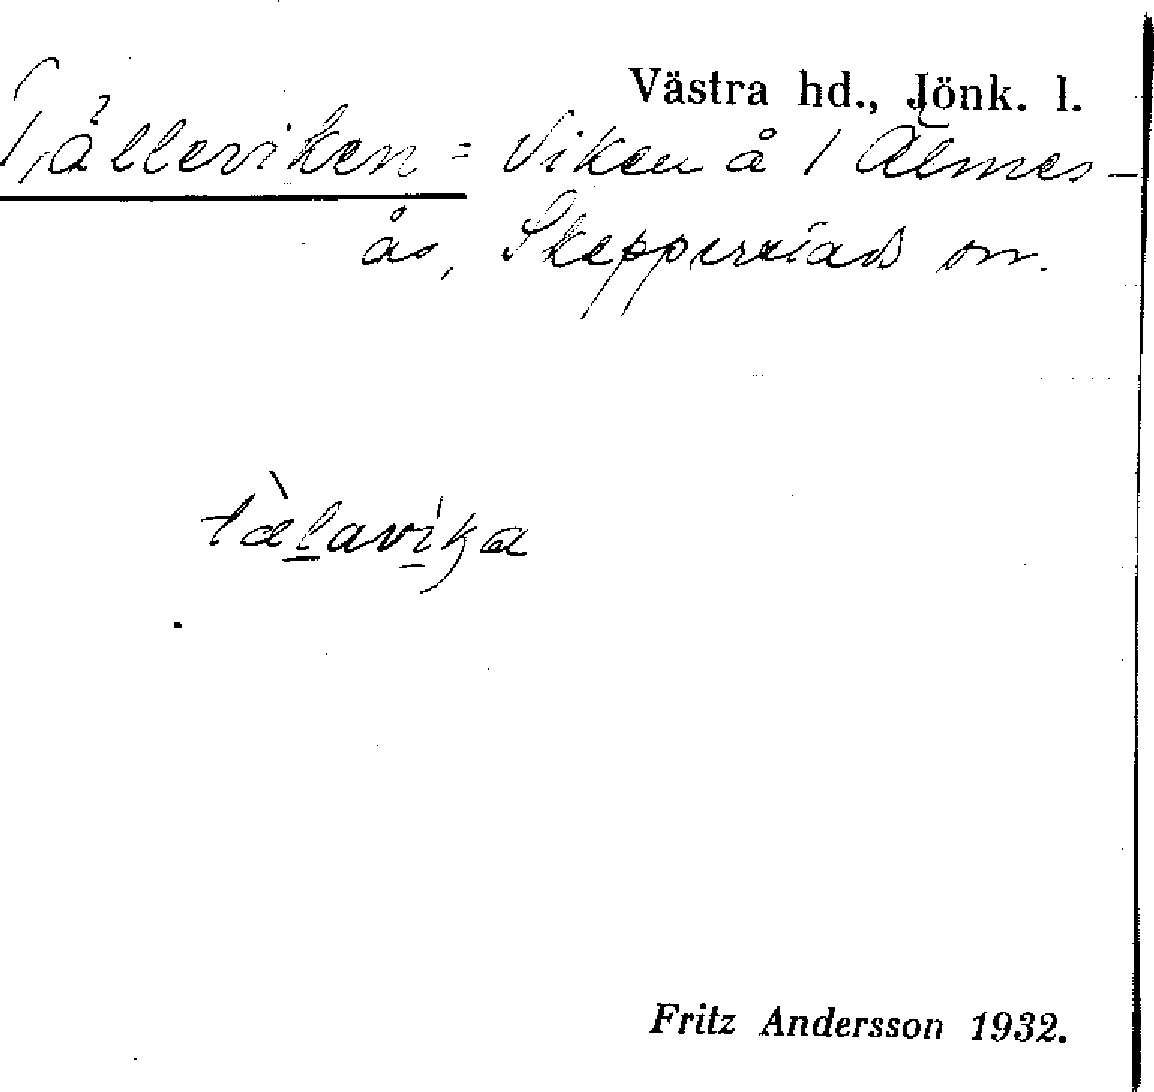 Västra hd., Jönk. l.
Tjälleviken = Viken å 1 Älmes-
ås, Skepperstads sn.
tàlavika
Fritz Andersson 1932.